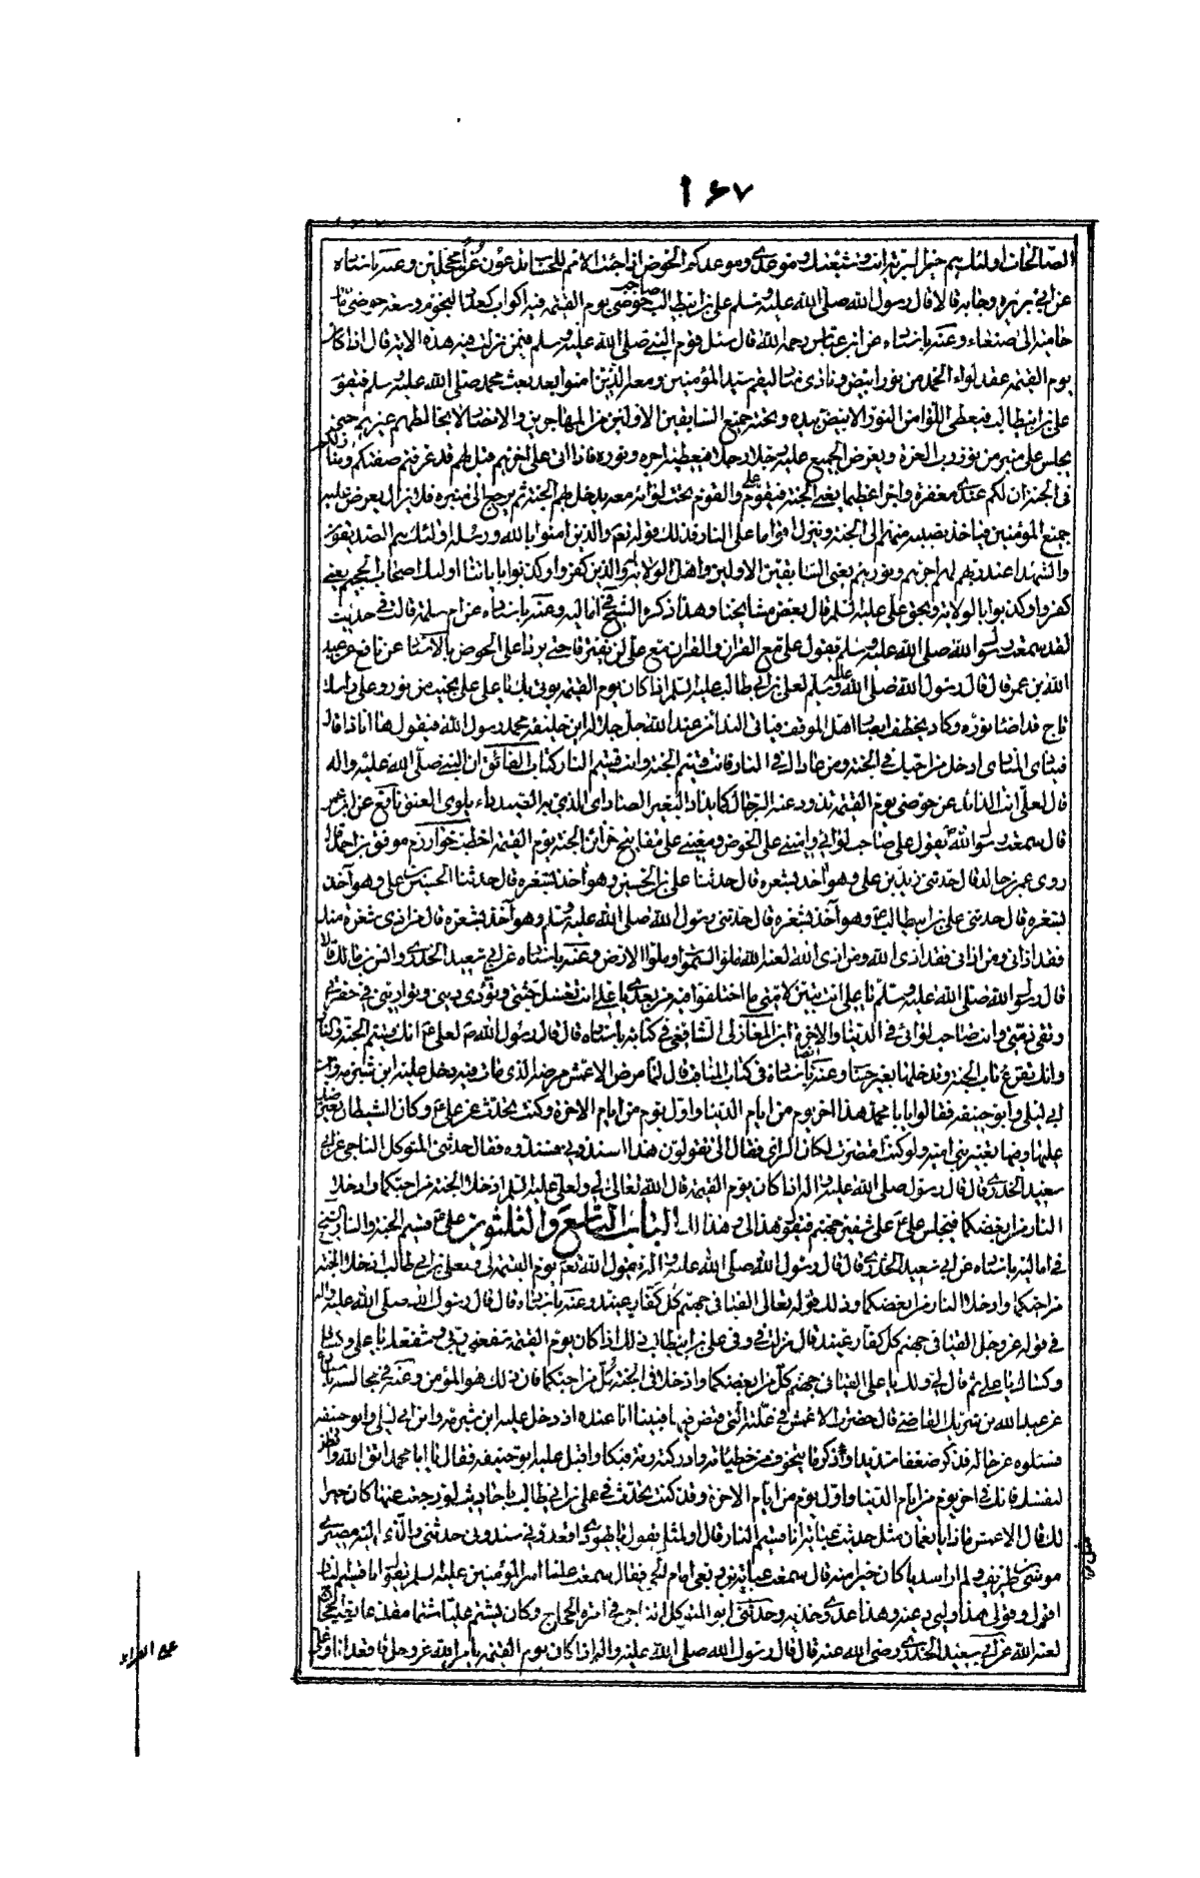 ١٦٧
الصالحات اولئك هم خير البرية انت وشيعتك وموعدي وموعدكم الحوض اذا جئت الامم للحساب تدعون غرا محجلين وعنه باسناده
عن ابي برزة وجابر قالا قال رسول الله صلى الله عليه وسلم علي بن ابيطالب صاحب حوضي يوم القيمة فيه اكواب كعدد النجوم وسعة حوضي ما
الى صنعاء وعنه باسناده عن ابن عباس رحمه الله قال سئل قوم النبي صلى الله عليه وسلم فيمن نزلت فيه هذه الاية قال اذا كان
يوم القيمة عقد لواء الحمد من نور ابيض ونادى مناد ليقم سيد المؤمنين ومعه الذين امنوا بعد بعث محمد صلى الله عليه وسلم فيقوم
علي بن ابيطالب فيعطى اللوا من النور الابيض بيده وتحته جميع السابقين الاولين من المهاجرين والانصار لا يخالطهم غيرهم حتى
يجلس على منبر من نور رب العزة ويعرض الجميع عليه رجلا رجلا فيعطيه اجره ونوره فاذا اتى على اخرهم قيل لهم قد عرفتم صفتكم ومنازلكم
في الجنة ان لكم عندي مغفرة واجرا عظيما يعني الجنة فيقوم علي والقوم تحت لوائه معه يدخل بهم الجنة ثم يرجع الى منبره فلا يزال يعرض عليه
جميع المؤمنين فياخذ نصيبه منهم الى الجنة وينزل اقواما على النار فذلك قوله تعم والذين امنوا بالله ورسله اولئك هم الصديقون
والشهداء عند ربهم لهم اجرهم ونورهم يعني السابقين الاولين واهل الولاية والذين كفروا وكذبوا باياتنا اولئك اصحاب الجحيم يعني
كفروا وكذبوا بالولاية وبحق علي عليه السلم قال بعض مشايخنا وهذا ذكره الشيخ في اماليه وعنه باسناده عن ام سلمة قالت في حديث
لقد سمعت رسول الله صلى الله عليه وسلم يقول علي مع القران والقران مع علي لن يفترقا حتى يردا على الحوض بالاسناد عن نافع عن عبد
الله بن عمر قال قال رسول الله صلى الله عليه وسلم لعلي بن ابي طالب عليه السلم اذا كان يوم القيمة يؤتى بك يا علي على نجيب من نور وعلى راسك
تاج قد اضاء نوره وكاد يخطف ابصار اهل الموقف فياتي النداء من عند الله جل جلاله اين خليفة محمد رسول الله فيقول ها انا ذا قال
فينادي المنادي ادخل من احبك في الجنة ومن عاداك في النار فانت قسيم الجنة وانت قسيم النار كتاب الفائق ان النبي صلى الله عليه واله
قال لعلي انت الذائد عن حوضي يوم القيمة تذود عنه الرجال كما يذاد البعير الصاد اي الذي به الصيد داء يلوي العنق نافع عن ابن عمر
قال سمعت رسول الله يقول علي صاحب لوائي واميني على الحوض ومعيني على مفاتيح خزائن الجنة يوم القيمة اخطب خوارزم موفق بن احمد قال
روى عمر بن خالد قال حدثني زيد بن علي وهو اخذ بشعره قال حدثنا علي بن الحسين وهو اخذ بشعره قال حدثنا الحسين بن علي وهو آخذ
بشعره قال حدثني علي بن ابيطالب وهو آخذ بشعره قال حدثني رسول الله صلى الله عليه وسلم وهو آخذ بشعره قال من اذى شعرة منك
فقد اذاني ومن اذاني فقد اذى الله ومن اذى الله لعنه الله ملؤ السموات وملؤ الارض وعنه باسناده عن ابي سعيد الخدري وانس بن مالك قالا
قال رسول الله صلى الله عليه وسلم يا علي انت تبين لامتي ما اختلفوا فيه من بعدي يا علي انت تغسل جثتي وتؤدي ديني وتواريني في حفرتي
وتفي بذمتي وانت صاحب لوائي في الدنيا والاخرة ابن المغازلي الشافعي في كتابه باسناده قال قال رسول الله لعلي انك قسيم الجنة والنار
وانك تقرع باب الجنة وتدخلها بغير حساب وعنه ايضا باسناده في كتاب المناقب قال لما مرض الاعمش مرضه الذي مات فيه دخل عليه ابن شبرمة وابن
ابي ليلى وابو حنيفة فقالوا يا با محمد هذا اخر يوم من ايام الدنيا واول يوم من ايام الاخرة وكنت تحدث عن علي وكان السلطان
عليها وفيها تعيير بني امية ولو كنت اقتصرت لكان الراي فقال الي تقولون هذا اسندوني فسندوه فقال حدثني المتوكل الناجي عن ابي
سعيد الخدري قال قال رسول صلى الله عليه واله اذا كان يوم القيمة قال الله تعالى لي ولعلي عليه السلم ادخلا الجنة من احبكما وادخلا
النار من ابغضكما فيجلس علي على شفير جهنم فيقول هذا لي وهذا لك الباب التاسع والثلثون علي قسيم الجنة والنار الشيخ
في اماليه باسناده عن ابي سعيد الخدري قال قال رسول الله صلى الله عليه واله يقول الله تعم يوم القيمة لي ولعلي بن ابي طالب ادخلا الجنة
من احبكما وادخلا النار من ابغضكما وذلك قوله تعالى القيا في جهنم كل كفار عنيد وعنه باسناده قال قال رسول الله صلى الله عليه واله
في قوله عز وجل القيا في جهنم كل كفار عنيد قال نزلت في وفي علي بن ابيطالب وذلك اذا كان يوم القيمة شفعني ربي وشفعك يا علي وكساني
وكساك يا علي ثم قال لي ولك يا علي القيا في جهنم كل من ابغضكما وادخلا في الجنة كل من احبكما فان ذلك هو المؤمن وعنه في مجالسه باسناده
عن عبد الله بن شريك القاضي قال حضرت الاعمش في علته التي قبض فيها فبينا انا عنده اذ دخل عليه ابن شبرمة وابن ابي ليلى وابو حنيفة
فسئلوه عن حاله فذكر ضعفا شديدا وذكر ما يتخوف من خطيئاته وادركته رقة فبكا واقبل عليه ابو حنيفة فقال يا ابا محمد اتق الله وانظر
لنفسك فانك في اخر يوم من ايام الدنيا واول يوم من ايام الاخرة وقد كنت تحدث في علي بن ابي طالب باحاديث لو رجعت عنها كان خيرا
لك قال الاعمش ماذا يا نعمان مثل حديث عباية انا قسيم النار قال اولمثلي تقول يا يهودي اقعدوني سندوني حدثني والذي اليه مصيري
موسى بن طريف ولم ار اسديا كان خيرا منه قال سمعت عباية بن ربعي امام الحي قال سمعت عليا امير المؤمنين عليه السلم يقول انا قسيم النار
اقول وقولي هذا وليي دعيه وهذا عدوي خذيه وحدثني ابو المتوكل الناجي في امرة الحجاج وكان يشتم عليا شتما مقذعا يعني الحجاج
لعنه الله عن ابي سعيد الخدري رضي الله عنه قال قال رسول الله صلى الله عليه واله اذا كان يوم القيمة يامر الله عز وجل فاقعد انا وعلي